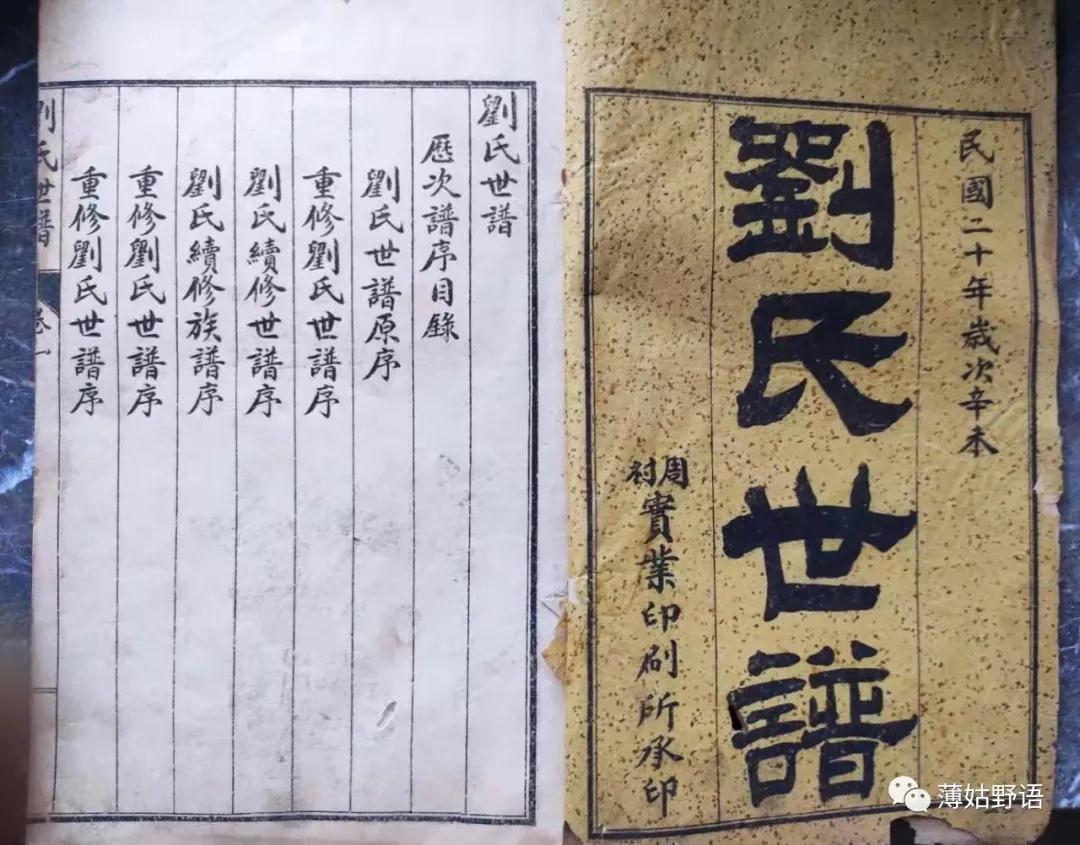 民國二十年歲次辛未
劉氏世譜
周村實業印刷所承印
劉氏世譜
歷次譜序目錄
劉氏世譜原序
重修劉氏世譜序
劉氏續修世譜序
劉氏續修族譜序
重修劉氏世譜序
重修劉氏世譜序
劉氏世譜 卷一
薄姑野语